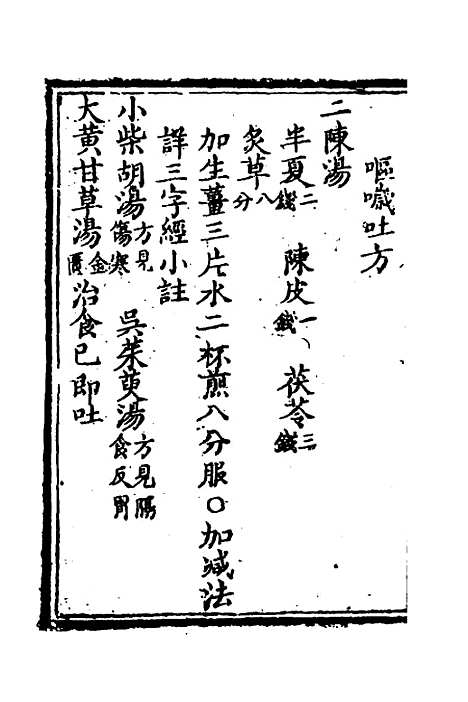 嘔噦吐方
二陳湯
半夏二錢 陳皮一錢、 茯苓三錢
炙草八分
加生薑三片水二杯煎八分服○加減法
詳三字經小註
小柴胡湯方見傷寒 吳茱萸湯方見隔食反胃
大黃甘草湯金匱治食已即吐